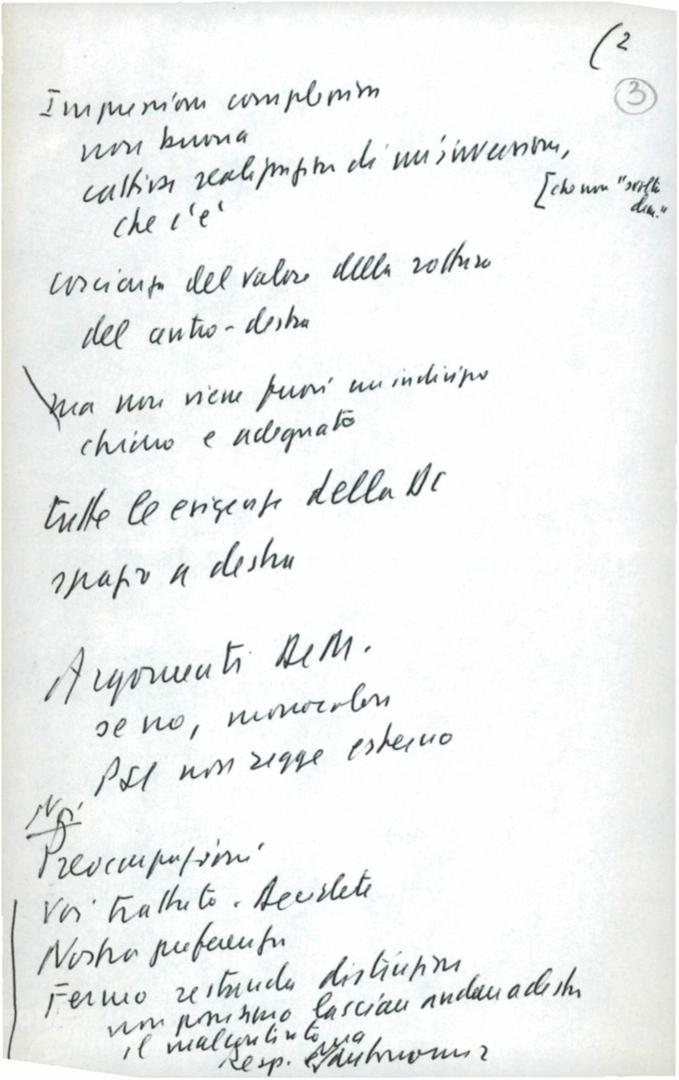 (2
3
Impressione complessiva
non buona
cattiva realizzazione di un'intenzione,
che c'è
[che non "svolta
dem."
coscienza del valore della rottura
del centro-destra
ma non viene fuori un indirizzo
chiaro e adeguato
tutte le esigenze della DC
spazio a destra
Argomenti De M.
se no, monocolore
PSI non regge esterno
Noi
Preoccupazioni
Voi trattate. Decidete
Nostra preferenza
Fermo restando distinzione
non possiamo lasciare andare a destra
il malcontento, ma
resp. e autonomia